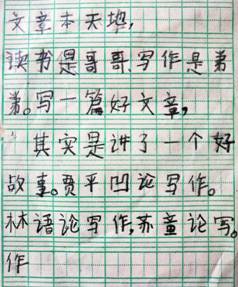 文章本天地,
读书是哥哥,写作是弟
弟。写一篇好文章,
其实是讲了一个好
故事。贾平凹论写作。
林语论写作,苏童论写。
作